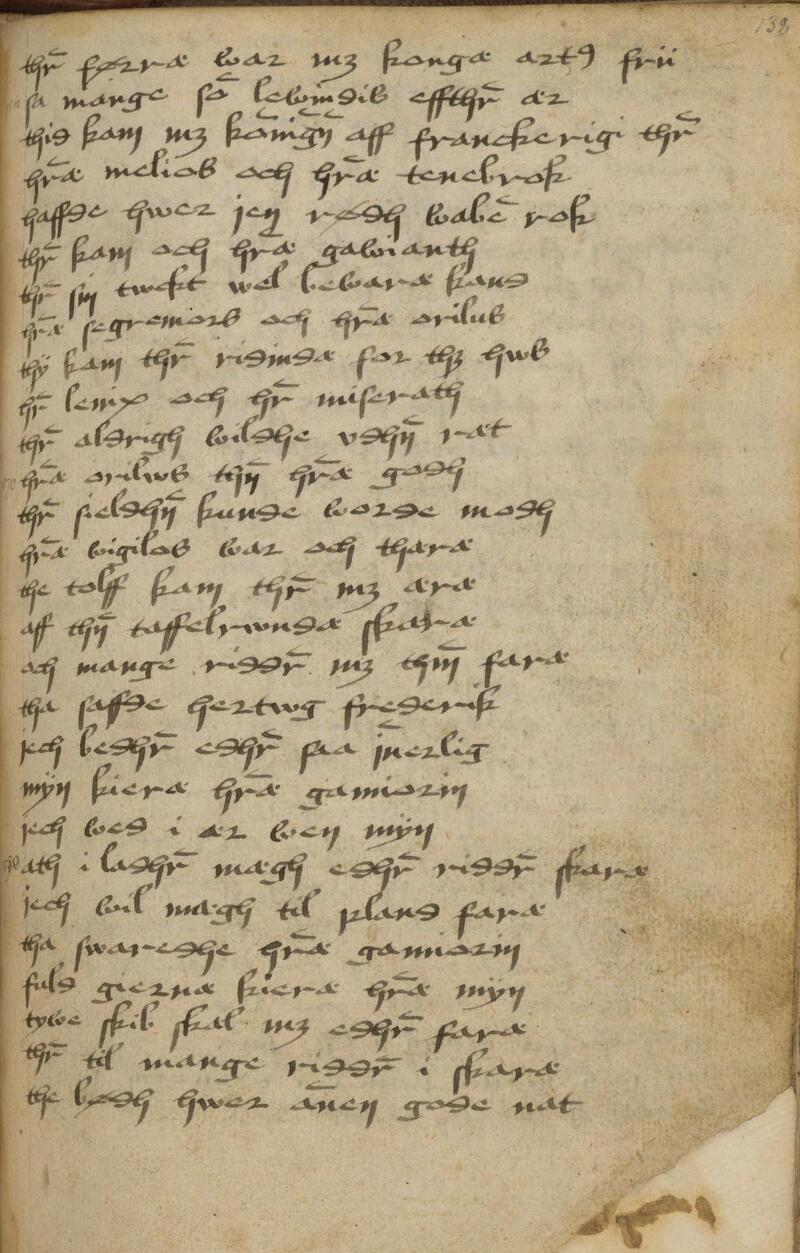 138
thr̄ førræ war mꝫ kongæ artꝰ frii
sa mange so᷎ lewindis effthr̄ ær
this kam mꝫ kōnīgn̄ aff franckerigi thr̄
hr̄æ melios och hr̄æ tenebrok
haffde hwer jen rødh wabē rok
thr̄ kam och hr̄æ gawianth
thr̄ sin twkt wel bewaræ kand
hr̄æ segremors och hr̄æ orilus
thy kam thr̄ ridindæ for thꝫ hws
hr̄ och hr̄ miserath
thr̄ aldrigh wildhe vdhn̄ ræt
hr̄æ orilws thn̄ hr̄æ godh
thr̄ sieldhn̄ kunde worde modh
hr̄æ wigilos war och thæræ
the tolff kam thr̄ mꝫ æræ
aff thn̄ taffelrwndæ skaræ
och mange riddr̄ mꝫ thm̄ faræ
tha saffde hertwg frederik
jech bedhr̄ edhr̄ saa īnerlig
myn kieræ hr̄æ gamiorin
jech wed i ær wen myn
ath i ladhr̄ mægh edhr̄ riddr̄ skaræ
jech wil mægh til pland faræ
tha swaredhe hr̄æ gamiorin
fuld giernæ kieræ hr̄æ myn
tywe skib skal mꝫ edhr̄ faræ
thr̄ til mange riddr̄ i skaræ
the bødh hwer ānen gode nat